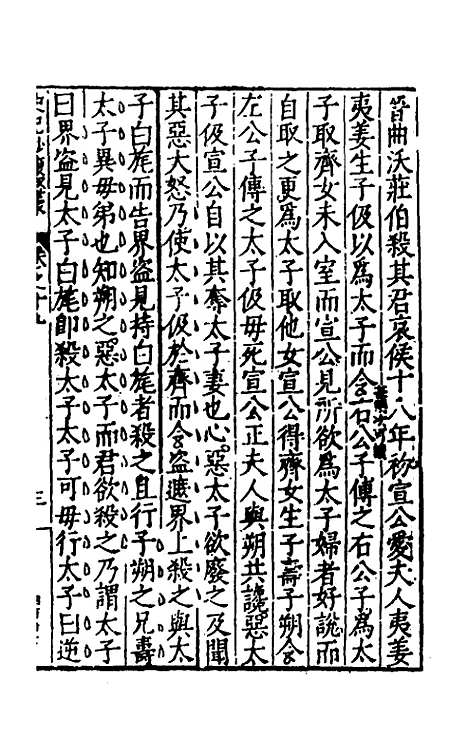 晉曲沃莊伯殺其君哀侯十八年初宣公愛夫人夷姜
夷姜生子伋以為太子而令右公子傅之右公子為太
子取齊女未入室而宣公見所欲為太子婦者好說而
自取之更為太子取他女宣公得齊女生子壽子朔令
左公子傅之太子伋母死宣公正夫人與朔共讒惡太
子伋宣公自以其奪太子妻也心惡太子欲廢之及聞
其惡大怒乃使太子伋於齊而令盜遮界上殺之與太
子白旄而告界盜見持白旄者殺之且行子朔之兄壽
太子異母弟也知朔之惡太子而君欲殺之乃謂太子
曰界盜見太子白旄即殺太子太子可毋行太子曰逆
三